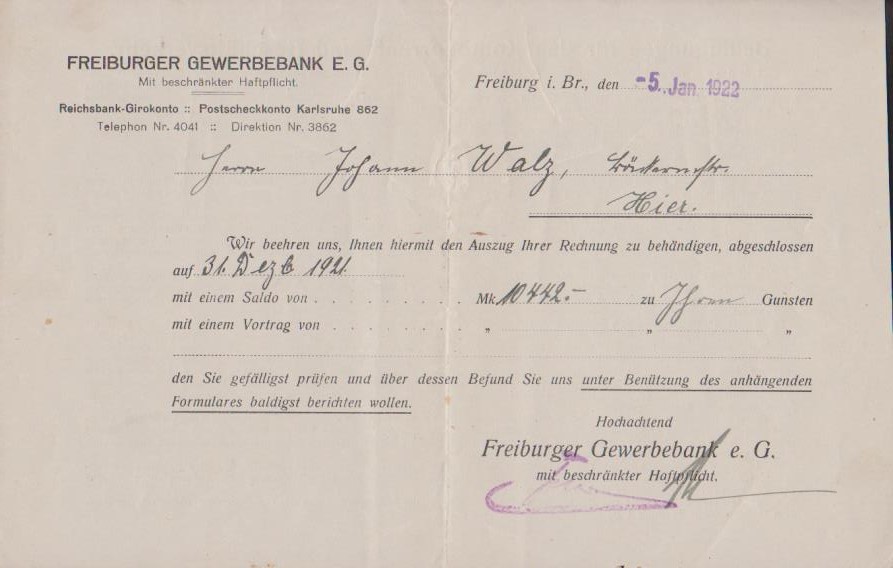 FREIBURGER GEWERBEBANK E. G.
Mit beschränkter Haftpflicht.
Reichsbank-Girokonto :: Postscheckkonto Karlsruhe 862
Telephon Nr. 4041 :: Direktion Nr. 3862
Freiburg i. Br., den -5. Jan. 1922
Herrn Johann Walz, Bäckermstr.
Hier.
Wir beehren uns, Ihnen hiermit den Auszug Ihrer Rechnung zu behändigen, abgeschlossen
auf 31. Dezb 1921.
mit einem Saldo von . . . . . . . . . Mk. 10442.- zu Ihren Gunsten
mit einem Vortrag von . . . . . . . . „ „ „
den Sie gefälligst prüfen und über dessen Befund Sie uns unter Benützung des anhängenden
Formulares baldigst berichten wollen.
Hochachtend
Freiburger Gewerbebank e. G.
mit beschränkter Haftpflicht.